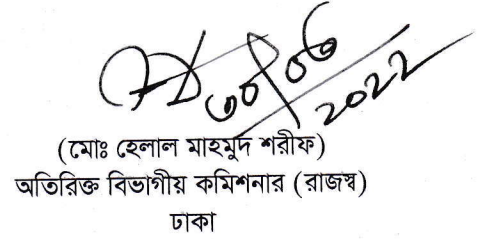 ৩০/০৬
2022
(মোঃ হেলাল মাহমুদ শরীফ)
অতিরিক্ত বিভাগীয় কমিশনার (রাজস্ব)
ঢাকা